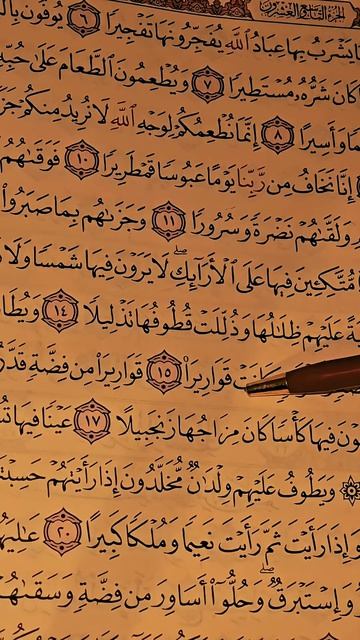 الجزء التاسع والعشرون
يشرب بها عباد الله يفجرونها تفجيرا ٦ يوفون بال
كان شره مستطيرا ٧ ويطعمون الطعام على حبه
ما وأسيرا ٨ إنما نطعمكم لوجه الله لا نريد منكم جز
إنا نخاف من ربنا يوما عبوسا قمطريرا ١٠ فوقىهم
ولقىهم نضرة وسرورا ١١ وجزىهم بما صبروا
متكـين فيها على الأرائك لا يرون فيها شمسا ولا ز
ية عليهم ظلىلها وذللت قطوفها تذليلا ١٤ ويطا
كانت قواريرا ١٥ قواريرا من فضة قدر
ون فيها كأسا كان مزاجها زنجبيلا ١٧ عينا فيها تس
۞ ويطوف عليهم ولدن مخلدون إذا رأيتهم حسبت
وإذا رأيت ثم رأيت نعيما وملكا كبيرا ٢٠ عليه
وإستبرق وحلوا أساور من فضة وسقىهم